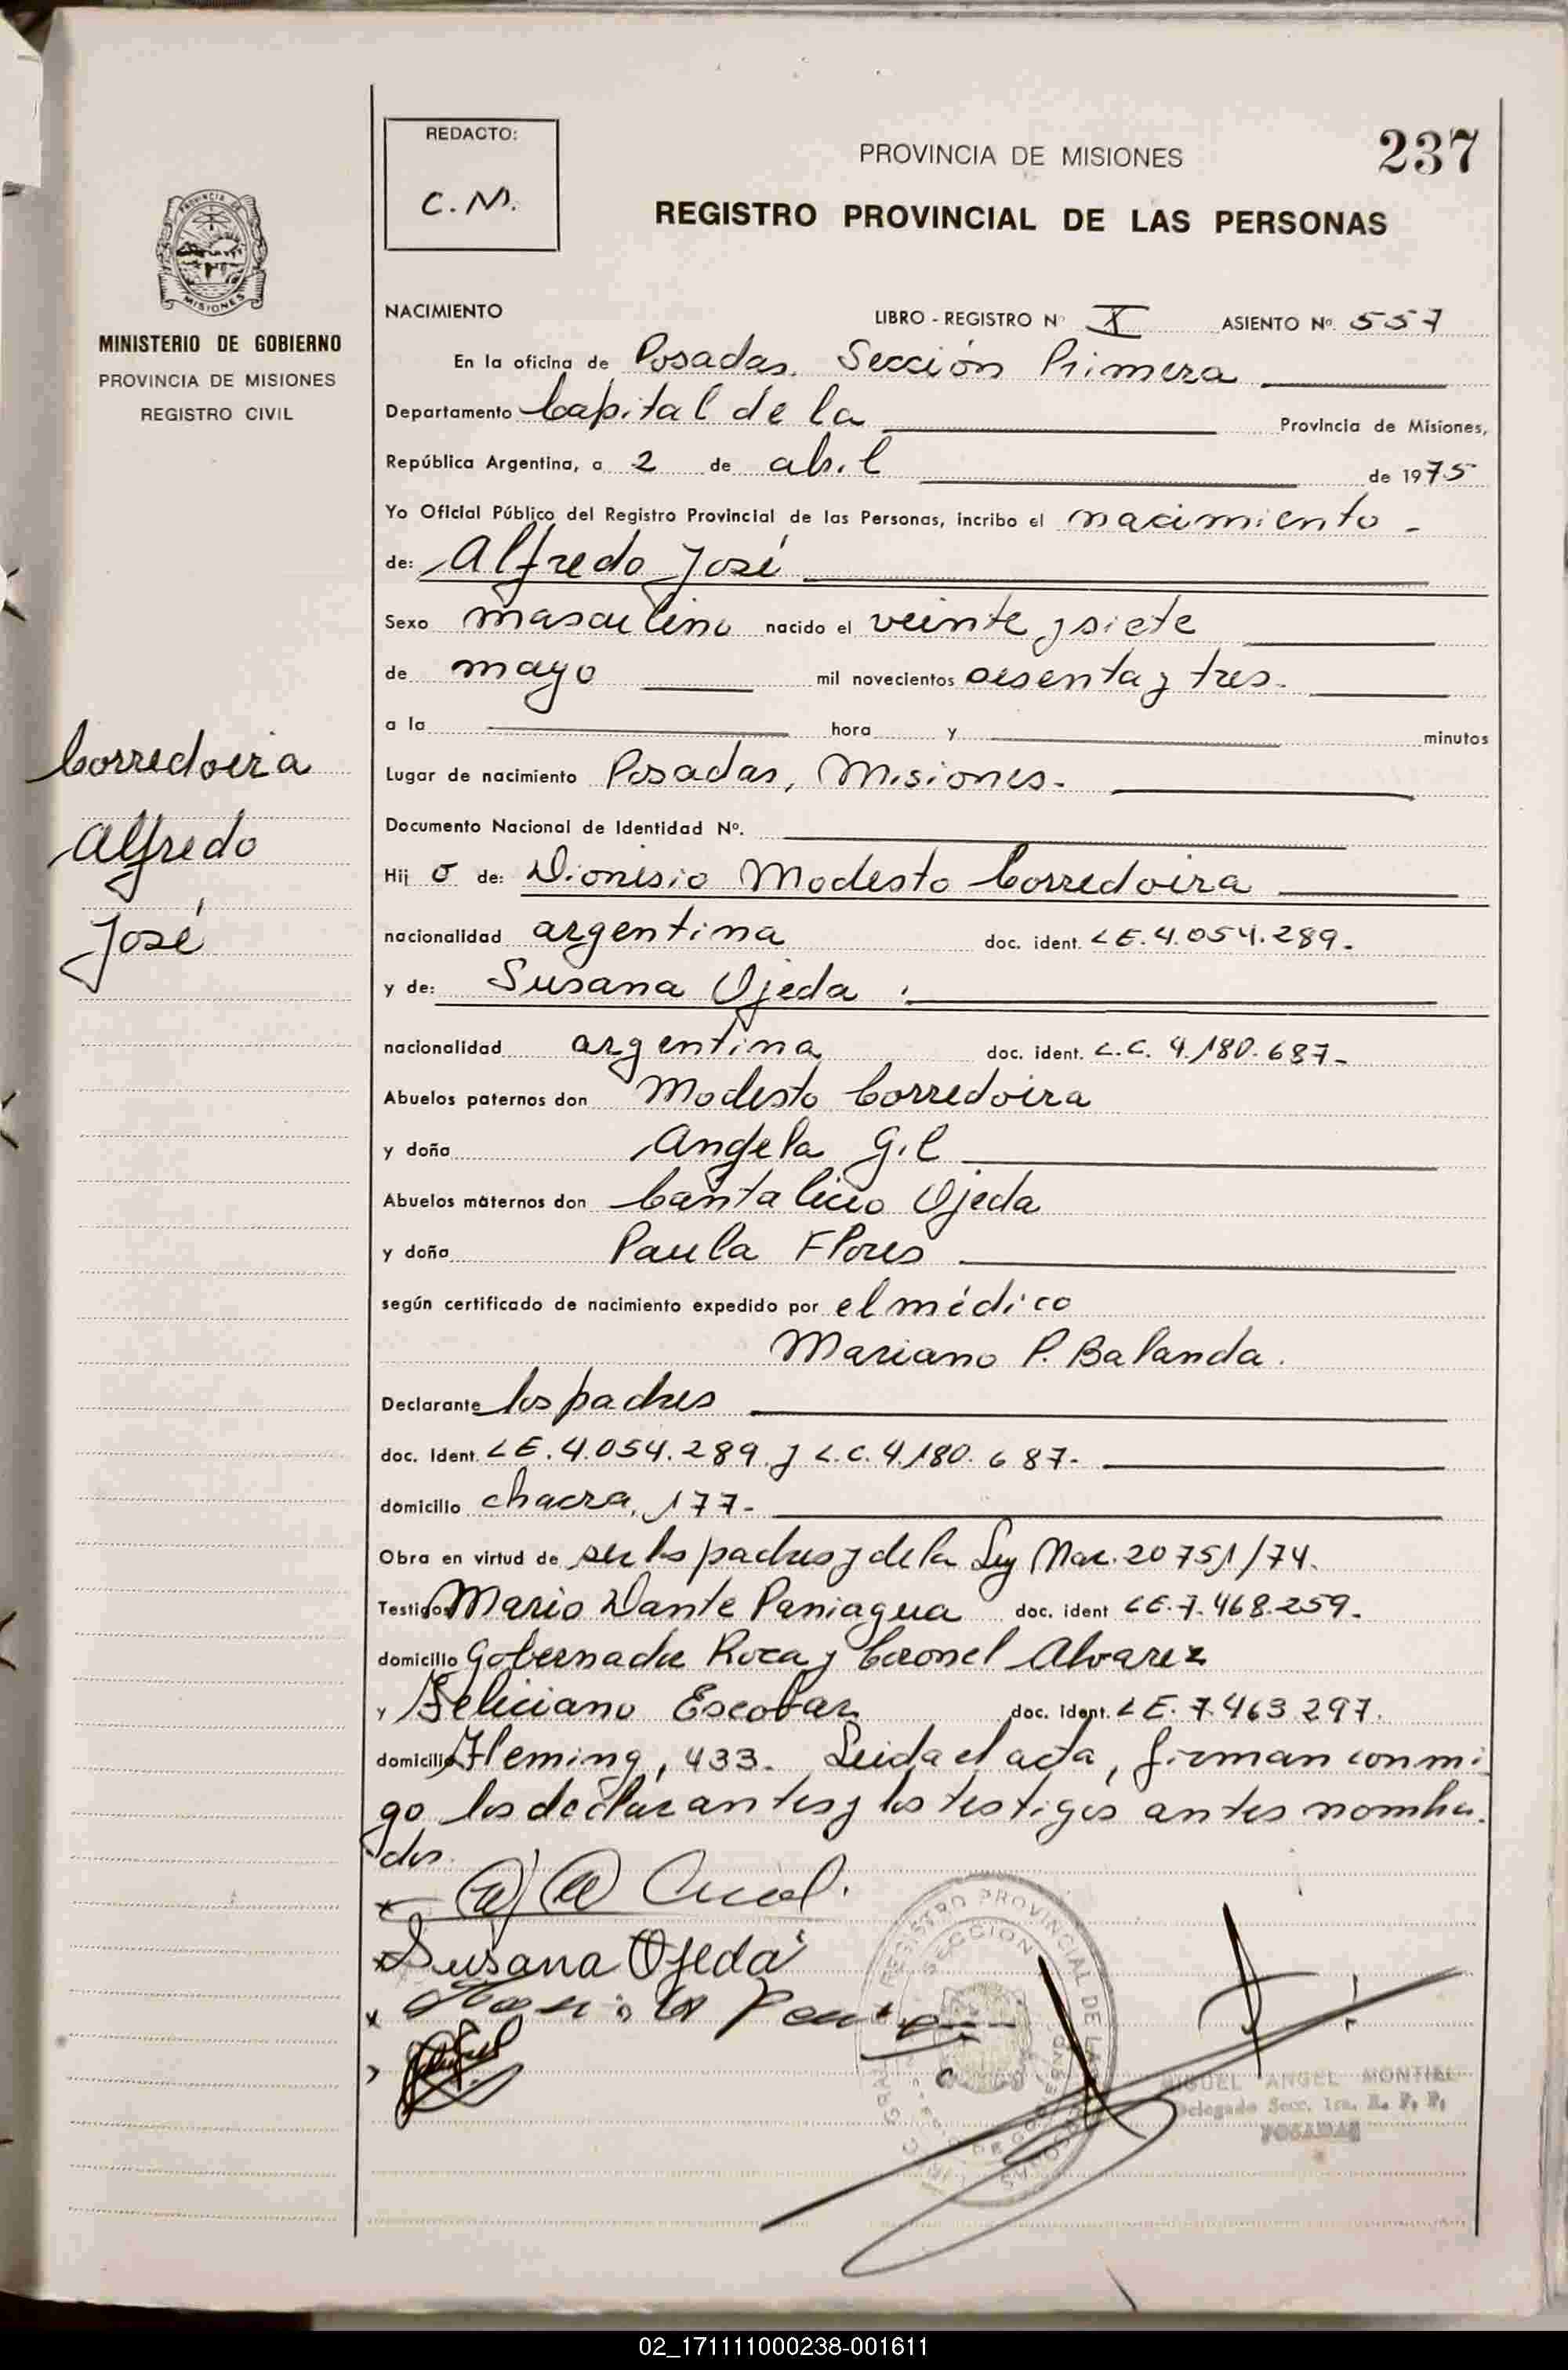 REDACTO:
C.M.
PROVINCIA DE MISIONES
237
REGISTRO PROVINCIAL DE LAS PERSONAS
PROVINCIA DE
MISIONES
MINISTERIO DE GOBIERNO
PROVINCIA DE MISIONES
REGISTRO CIVIL
Corredoira
Alfredo
José
NACIMIENTO LIBRO - REGISTRO Nº X ASIENTO Nº. 557
En la oficina de Posadas. Sección Primera
Departamento Capital de la Provincia de Misiones,
República Argentina, a 2 de abril de 1975
Yo Oficial Público del Registro Provincial de las Personas, incribo el nacimiento -
de: Alfredo José
Sexo masculino nacido el veinte y siete
de mayo mil novecientos sesenta y tres.
a la hora y minutos
Lugar de nacimiento Posadas, Misiones.
Documento Nacional de Identidad Nº.
Hij o de: Dionisio Modesto Corredoira
nacionalidad argentina doc. ident. LE. 4.054.289.
y de: Susana Ojeda
nacionalidad argentina doc. ident. L.C. 4.180.687-
Abuelos paternos don Modesto Corredoira
y doña Angela Gil
Abuelos maternos don Cantalicio Ojeda
y doña Paula Flores
según certificado de nacimiento expedido por el médico
Mariano P. Balanda.
Declarante los padres
doc. Ident. LE. 4.054.289. y L.C. 4.180.687-
domicilio chacra, 177-
Obra en virtud de ser los padres y de la Ley Nac. 20751/74.
Testigos Mario Dante Paniagua doc. ident LE. 7.468.259.
domicilio Gobernador Roca y Coronel Alvarez
y Feliciano Escobar doc. ident. LE. 7.463.297.
domicilio Fleming, 433. Leida el acta, firman conmi
go los declarantes y los testigos antes nombra
dos.
Susana Ojeda
REGISTRO PROVINCIAL DE LAS PERSONAS
SECCION
MIGUEL ANGEL MONTIEL
Delegado Secc. 1ra. R. P. P.
POSADAS
02_171111000238-001611